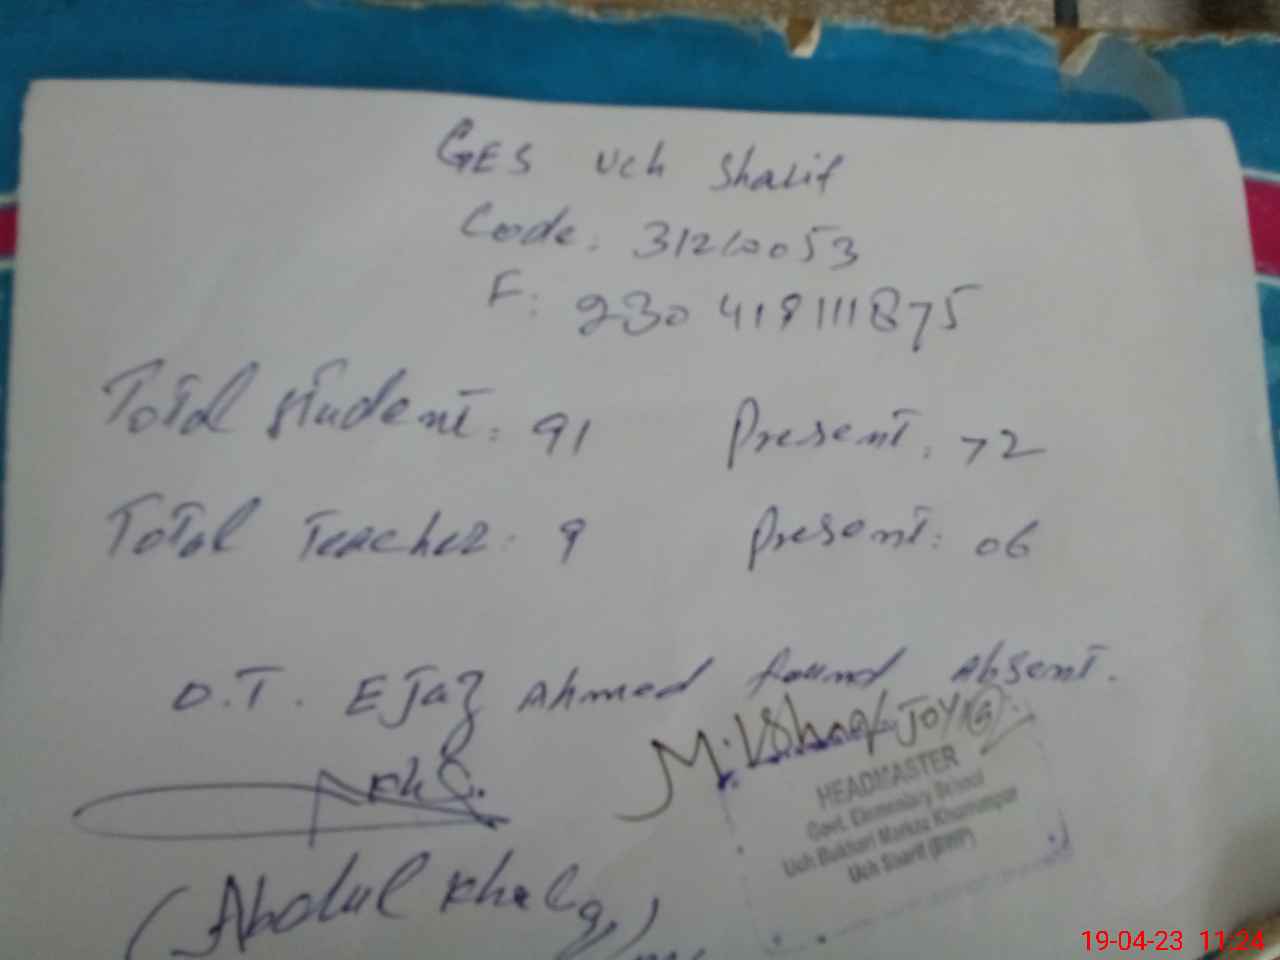 GES Uch Sharif
Code: 31210053
F: 230 418111875
Total student: 91 Present: 72
Total Teacher: 9 Present: 06
D.T. Ejaz Ahmed found Absent.
M. Ishaq JOYIA
HEADMASTER
Govt. Elementary School
Uch Bukhari Markaz
Uch Sharif (BWP)
(Abdul Khaliq)
19-04-23 11:24